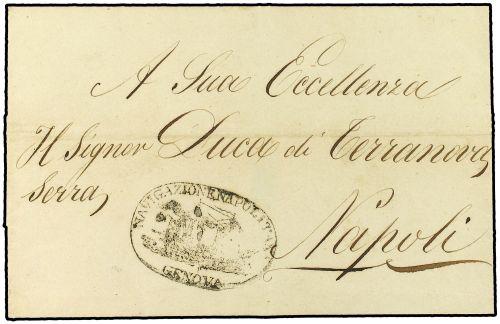 A Sua Eccellenza
Il Signor Duca di Terranova
Serra
Napoli
NAVIGAZIONE NAPOLITANA
GENOVA